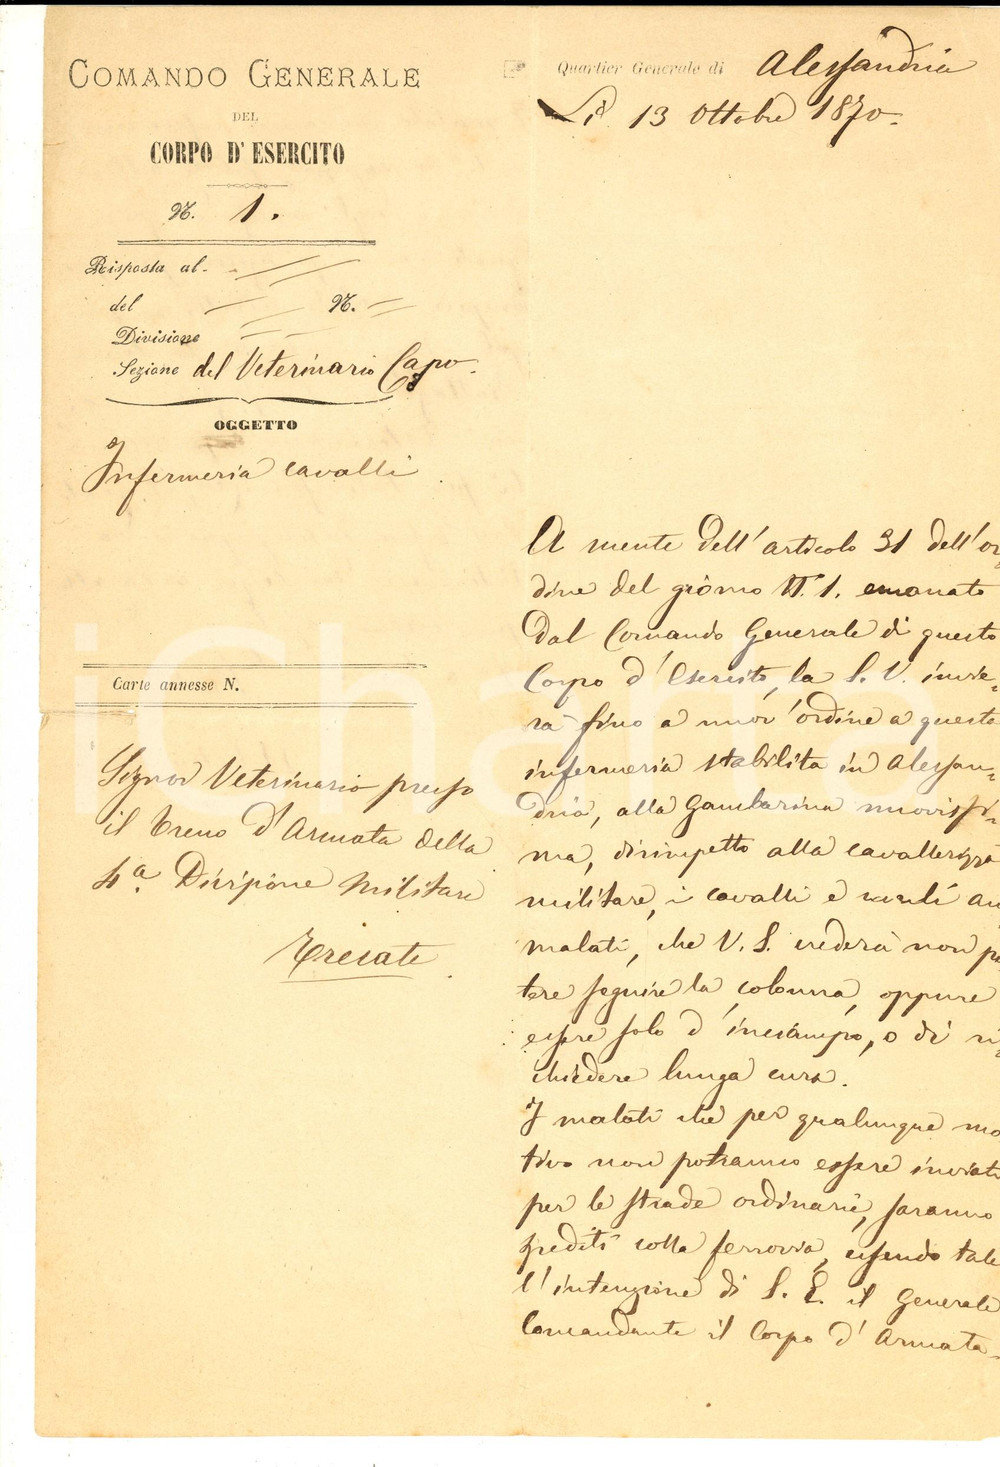 COMANDO GENERALE
DEL
CORPO D'ESERCITO
N. 1.
Risposta al.
del N.
Divisione
Sezione del Veterinario Capo.
OGGETTO
Infermeria cavalli
Carte annesse N.
Signor Veterinario presso
il treno d'Armata della
4a. Divisione Militare
Trecate
Quartier Generale di Alessandria
Li 13 Ottobre 1870.
A mente dell'articolo 31 dell'or-
dine del giorno N. 1. emanato
dal Comando Generale di questo
Corpo d'Esercito, la S. V. invie-
rà fino a nuov'ordine a questa
infermeria stabilita in Alessan-
dria, alla Gambarina nuovissi-
ma, dirimpetto alla cavallerizza
militare, i cavalli e muli am
malati, che V. S. crederà non po
tere seguire la colonna, oppure
essere solo d'inciampo, o di ri-
chiedere lunga cura.
I malati che per qualunque mo
tivo non potranno essere inviati
per le strade ordinarie, saranno
spediti colla ferrovia, essendo tale
l'intenzione di S. E. il Generale
Comandante il Corpo d'Armata.
iCharta